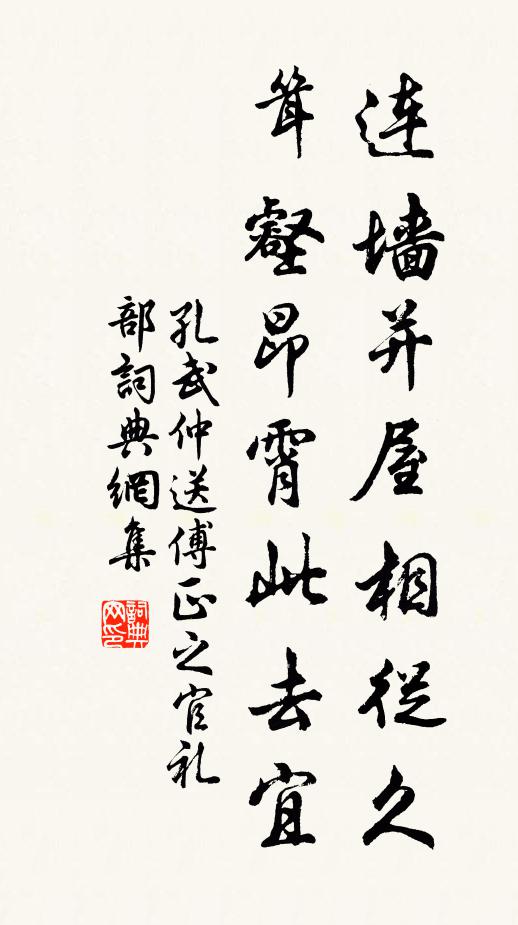 連墙并屋相從久
耸壑昂霄此去宜
孔武仲送傅正之官礼
部詞典網集
詞典
网印